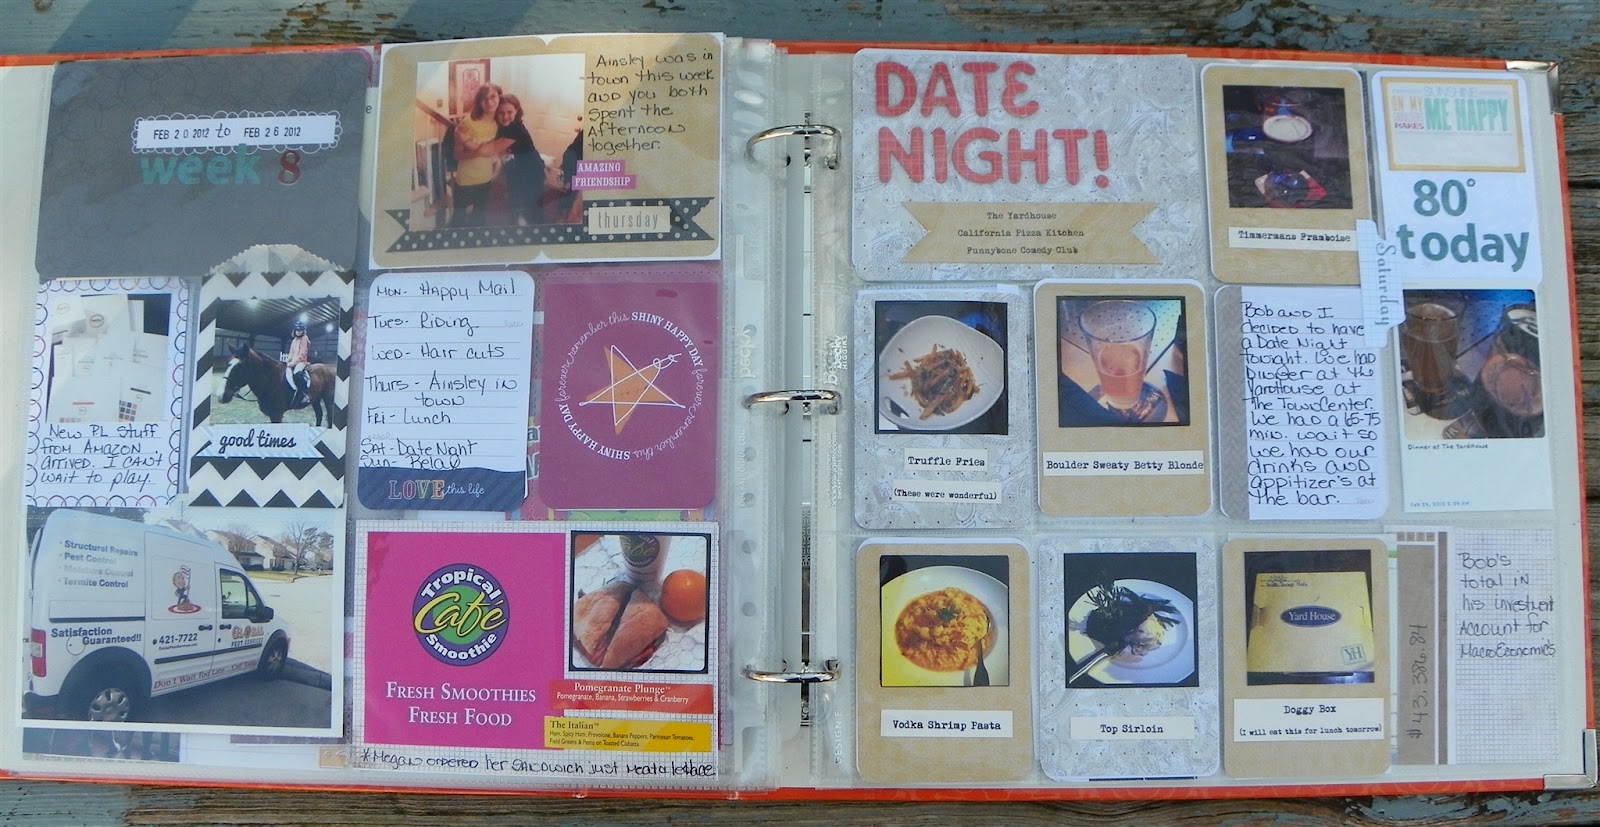 FEB 20 2012 to FEB 26 2012
week 8
Ainsley was in
town this week
and you both
spent the
Afternoon
together.
AMAZING
FRIENDSHIP
thursday
New PL Stuff
from Amazon
arrived. I can't
wait to play.
good times
Mon- Happy Mail
Tues- Riding
Wed- Hair cuts
Thurs- Ainsley in
town
Fri- Lunch
Sat- Date Night
Sun- Relax
LOVE this life
SHINY HAPPY DAY forever remember this SHINY HAPPY DAY forever remember this
• Structural Repairs
• Pest Control
• Moisture Control
• Termite Control
Satisfaction
Guaranteed!!
421-7722
GLOBAL
PEST SERVICES
Don't Wait Too Late... Call Today
Tropical
Cafe
Smoothie
FRESH SMOOTHIES
FRESH FOOD
Pomegranate Plunge™
Pomegranate, Banana, Strawberries & Cranberry
The Italian™
Ham, Spicy Ham, Provolone, Banana Peppers, Parmesan Tomatoes,
Field Greens & Pesto on Toasted Ciabatta
* Megan ordered her sandwich just meat & lettace
becky
HIGGINS
DATE
NIGHT!
The Yardhouse
California Pizza Kitchen
Funnybone Comedy Club
Timmermans Framboise
SUNSHINE
ON MY
MAKES
ME HAPPY
80°
today
Saturday
Truffle Fries
(These were wonderful)
Boulder Sweaty Betty Blonde
Bob and I
decided to have
a Date Night
tonight. We had
Dinner at the
Yardhouse at
The TownCenter.
We had a 65-75
min. wait so
we had our
drinks and
appitizer's at
the bar.
Dinner at The YardHouse
Vodka Shrimp Pasta
Top Sirloin
Yard House
YH
Doggy Box
(I will eat this for lunch tomorrow)
Bob's
total in
his investment
Account for
MacroEconomics